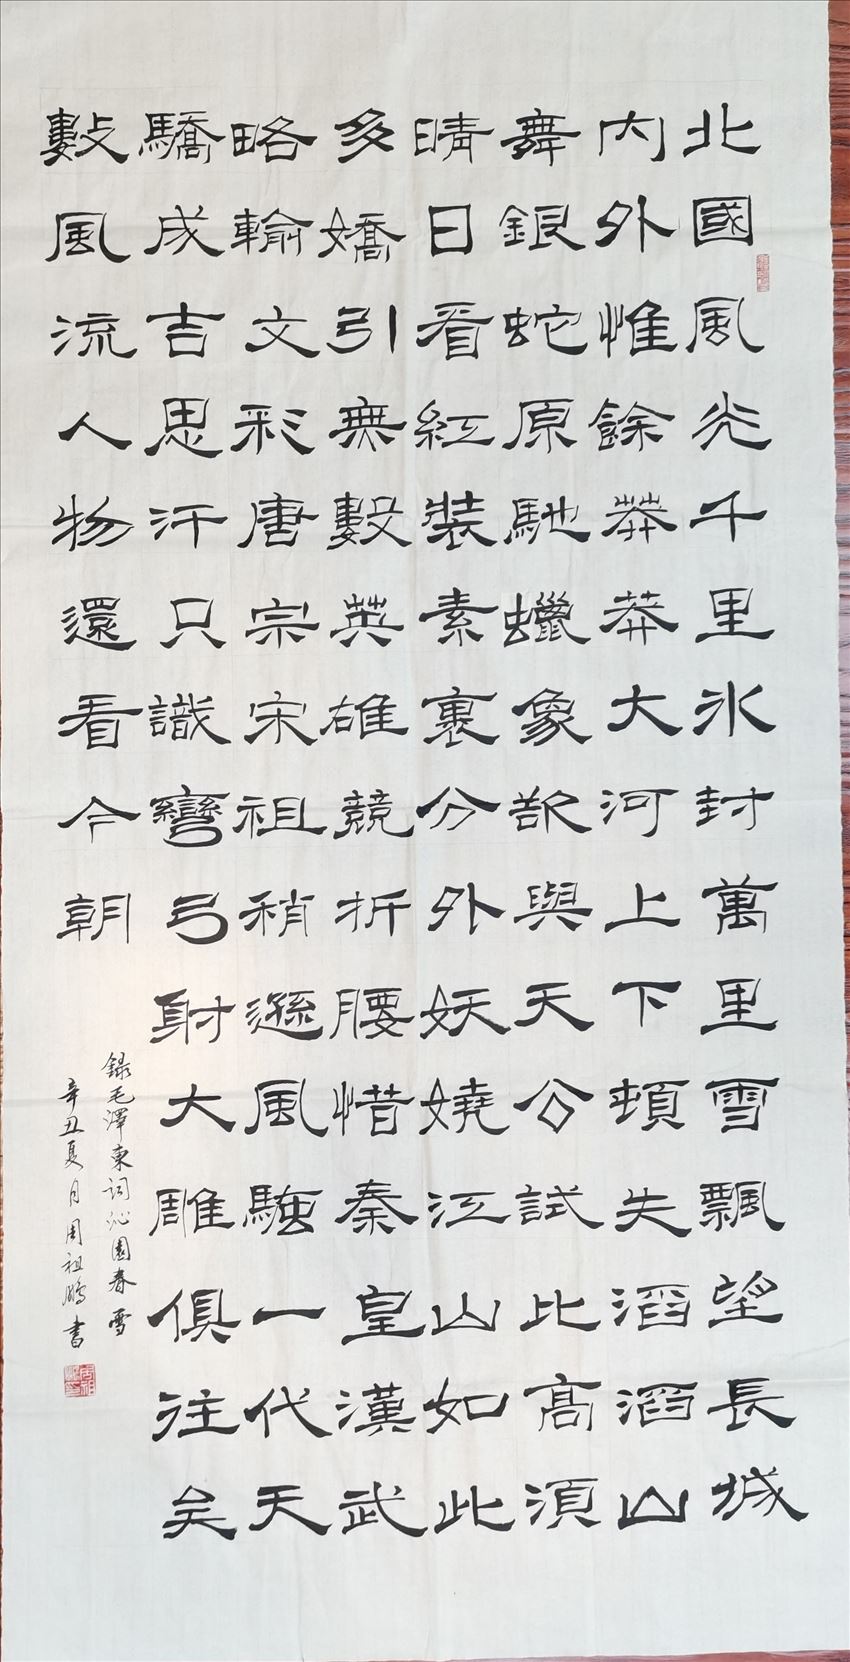 北國風光千里冰封萬里雪飄望長城
内外惟餘莽莽大河上下頓失滔滔山
舞銀蛇原馳蠟象欲與天公試比高須
晴日看紅裝素裹分外妖嬈江山如此
多嬌引無數英雄競折腰惜秦皇漢武
略輸文彩唐宗宋祖稍遜風騷一代天
驕成吉思汗只識彎弓射大雕俱往矣
數風流人物還看今朝
錄毛澤東詞沁園春雪
辛丑夏月周祖鵬書